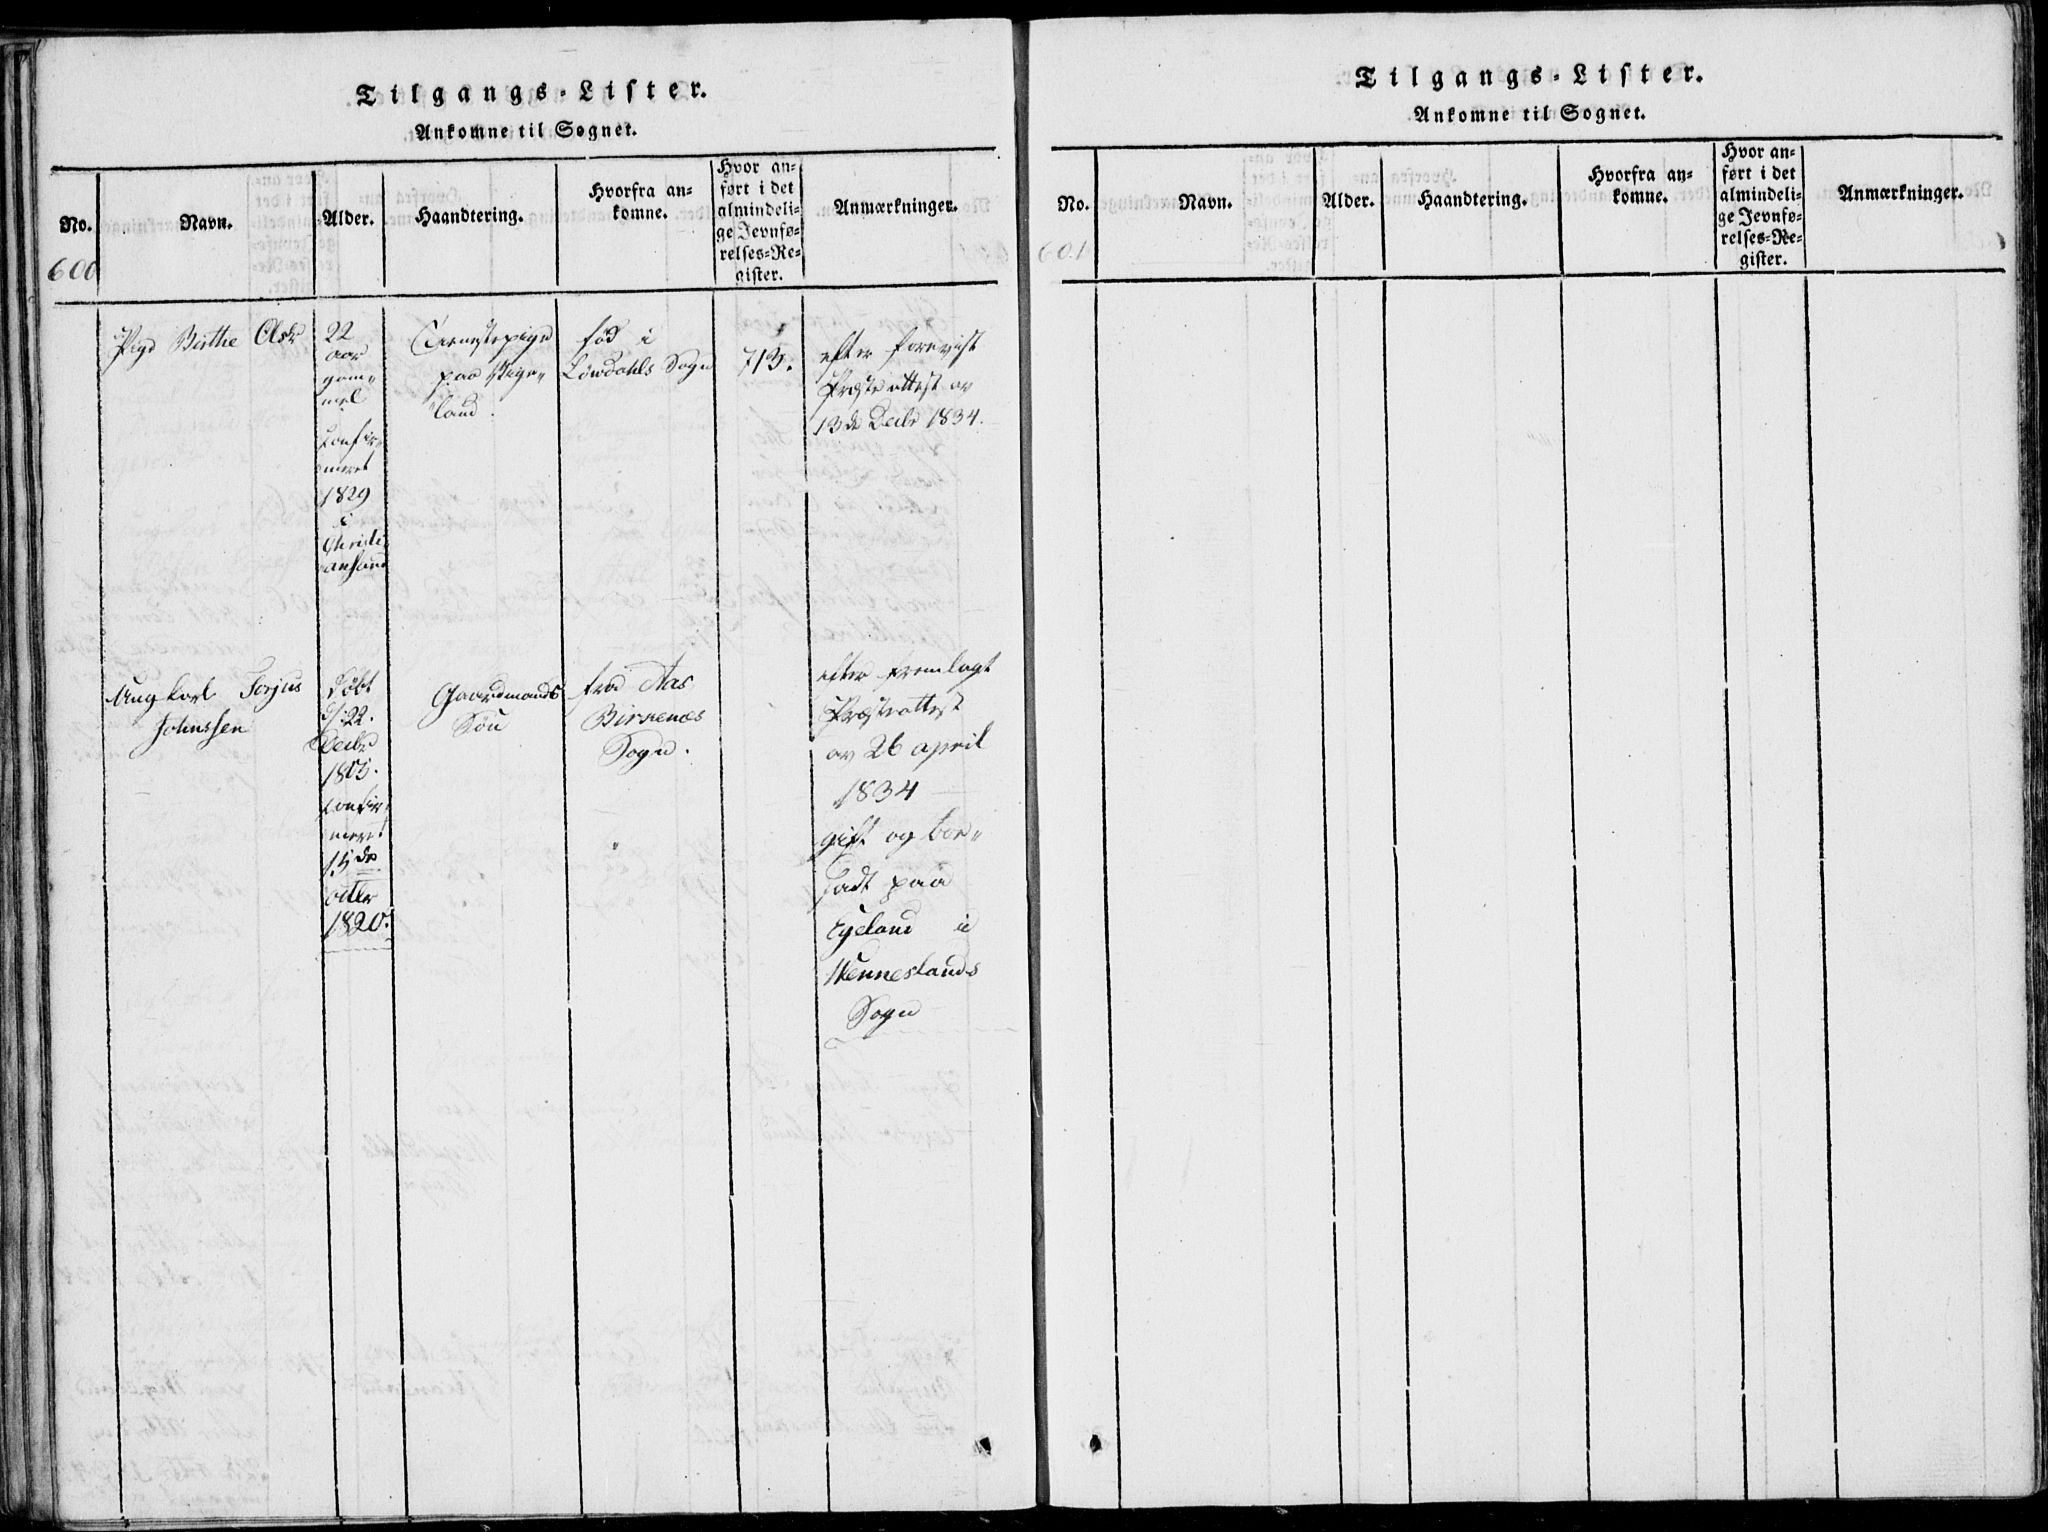 Tilgangs-Lister.
Ankomne til Sognet.
No.
Navn.
Alder.
Haandtering.
Hvorfra an-
komne.
Hvor an-
ført i det
almindeli-
ge Jevnfø-
relses-Re-
gister.
Anmærkninger.
600
Pige Birthe Olsd
22
aar
gam„
mel
Confir„
meret
1829
i
Christi„
ansand
Tienestepige
paa Vige„
land.
fød i
Løwdahls Sogn
713.
efter foreviist
Præsteattest av
13de Decbr 1834.
Ungkarl Terjus
Johnssen
døbt
d: 22.
Decbr
1803.
Confir„
meret
15de
octbr
1820.
Gaardmands
Søn
fra Aas
Birkenæs
Sogn.
efter fremlagt
Præsteattest
av 26 april
1834
gift og bo„
sadt paa
Egeland i
Wenneslands
Sogn
Tilgangs-Lister.
Ankomne til Sognet.
No.
Navn.
Alder.
Haandtering.
Hvorfra an-
komne.
Hvor an-
ført i det
almindeli-
ge Jevnfø-
relses-Re-
gister.
Anmærkninger.
601